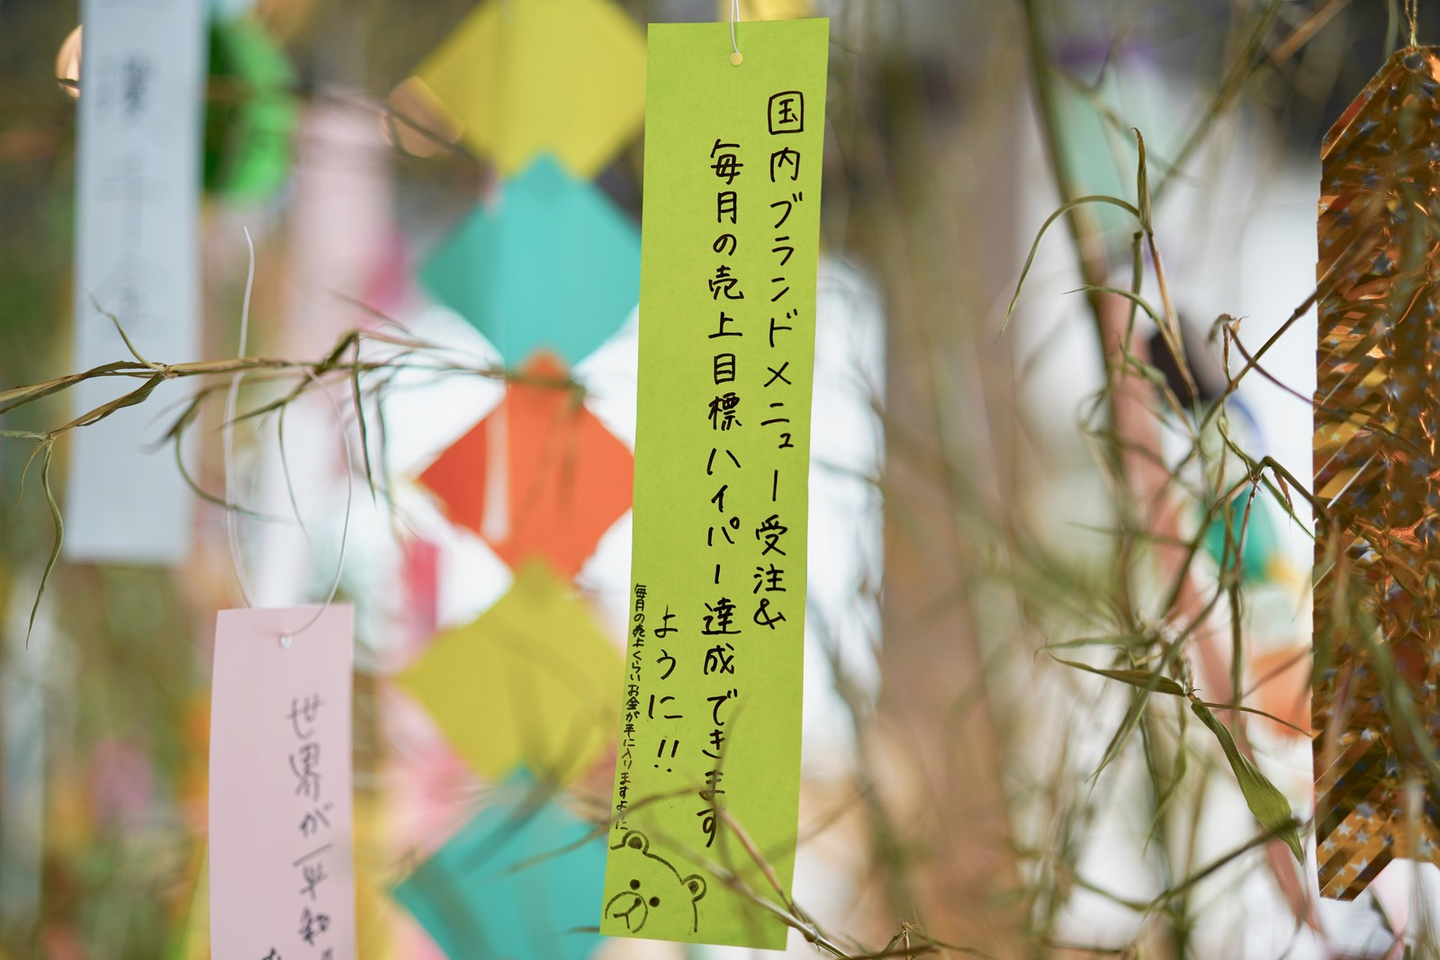 国内ブランドメニュー受注&
毎月の売上目標ハイパー達成できます
ように!!
毎月の売上くらいお金が手に入りますように
世界が平和